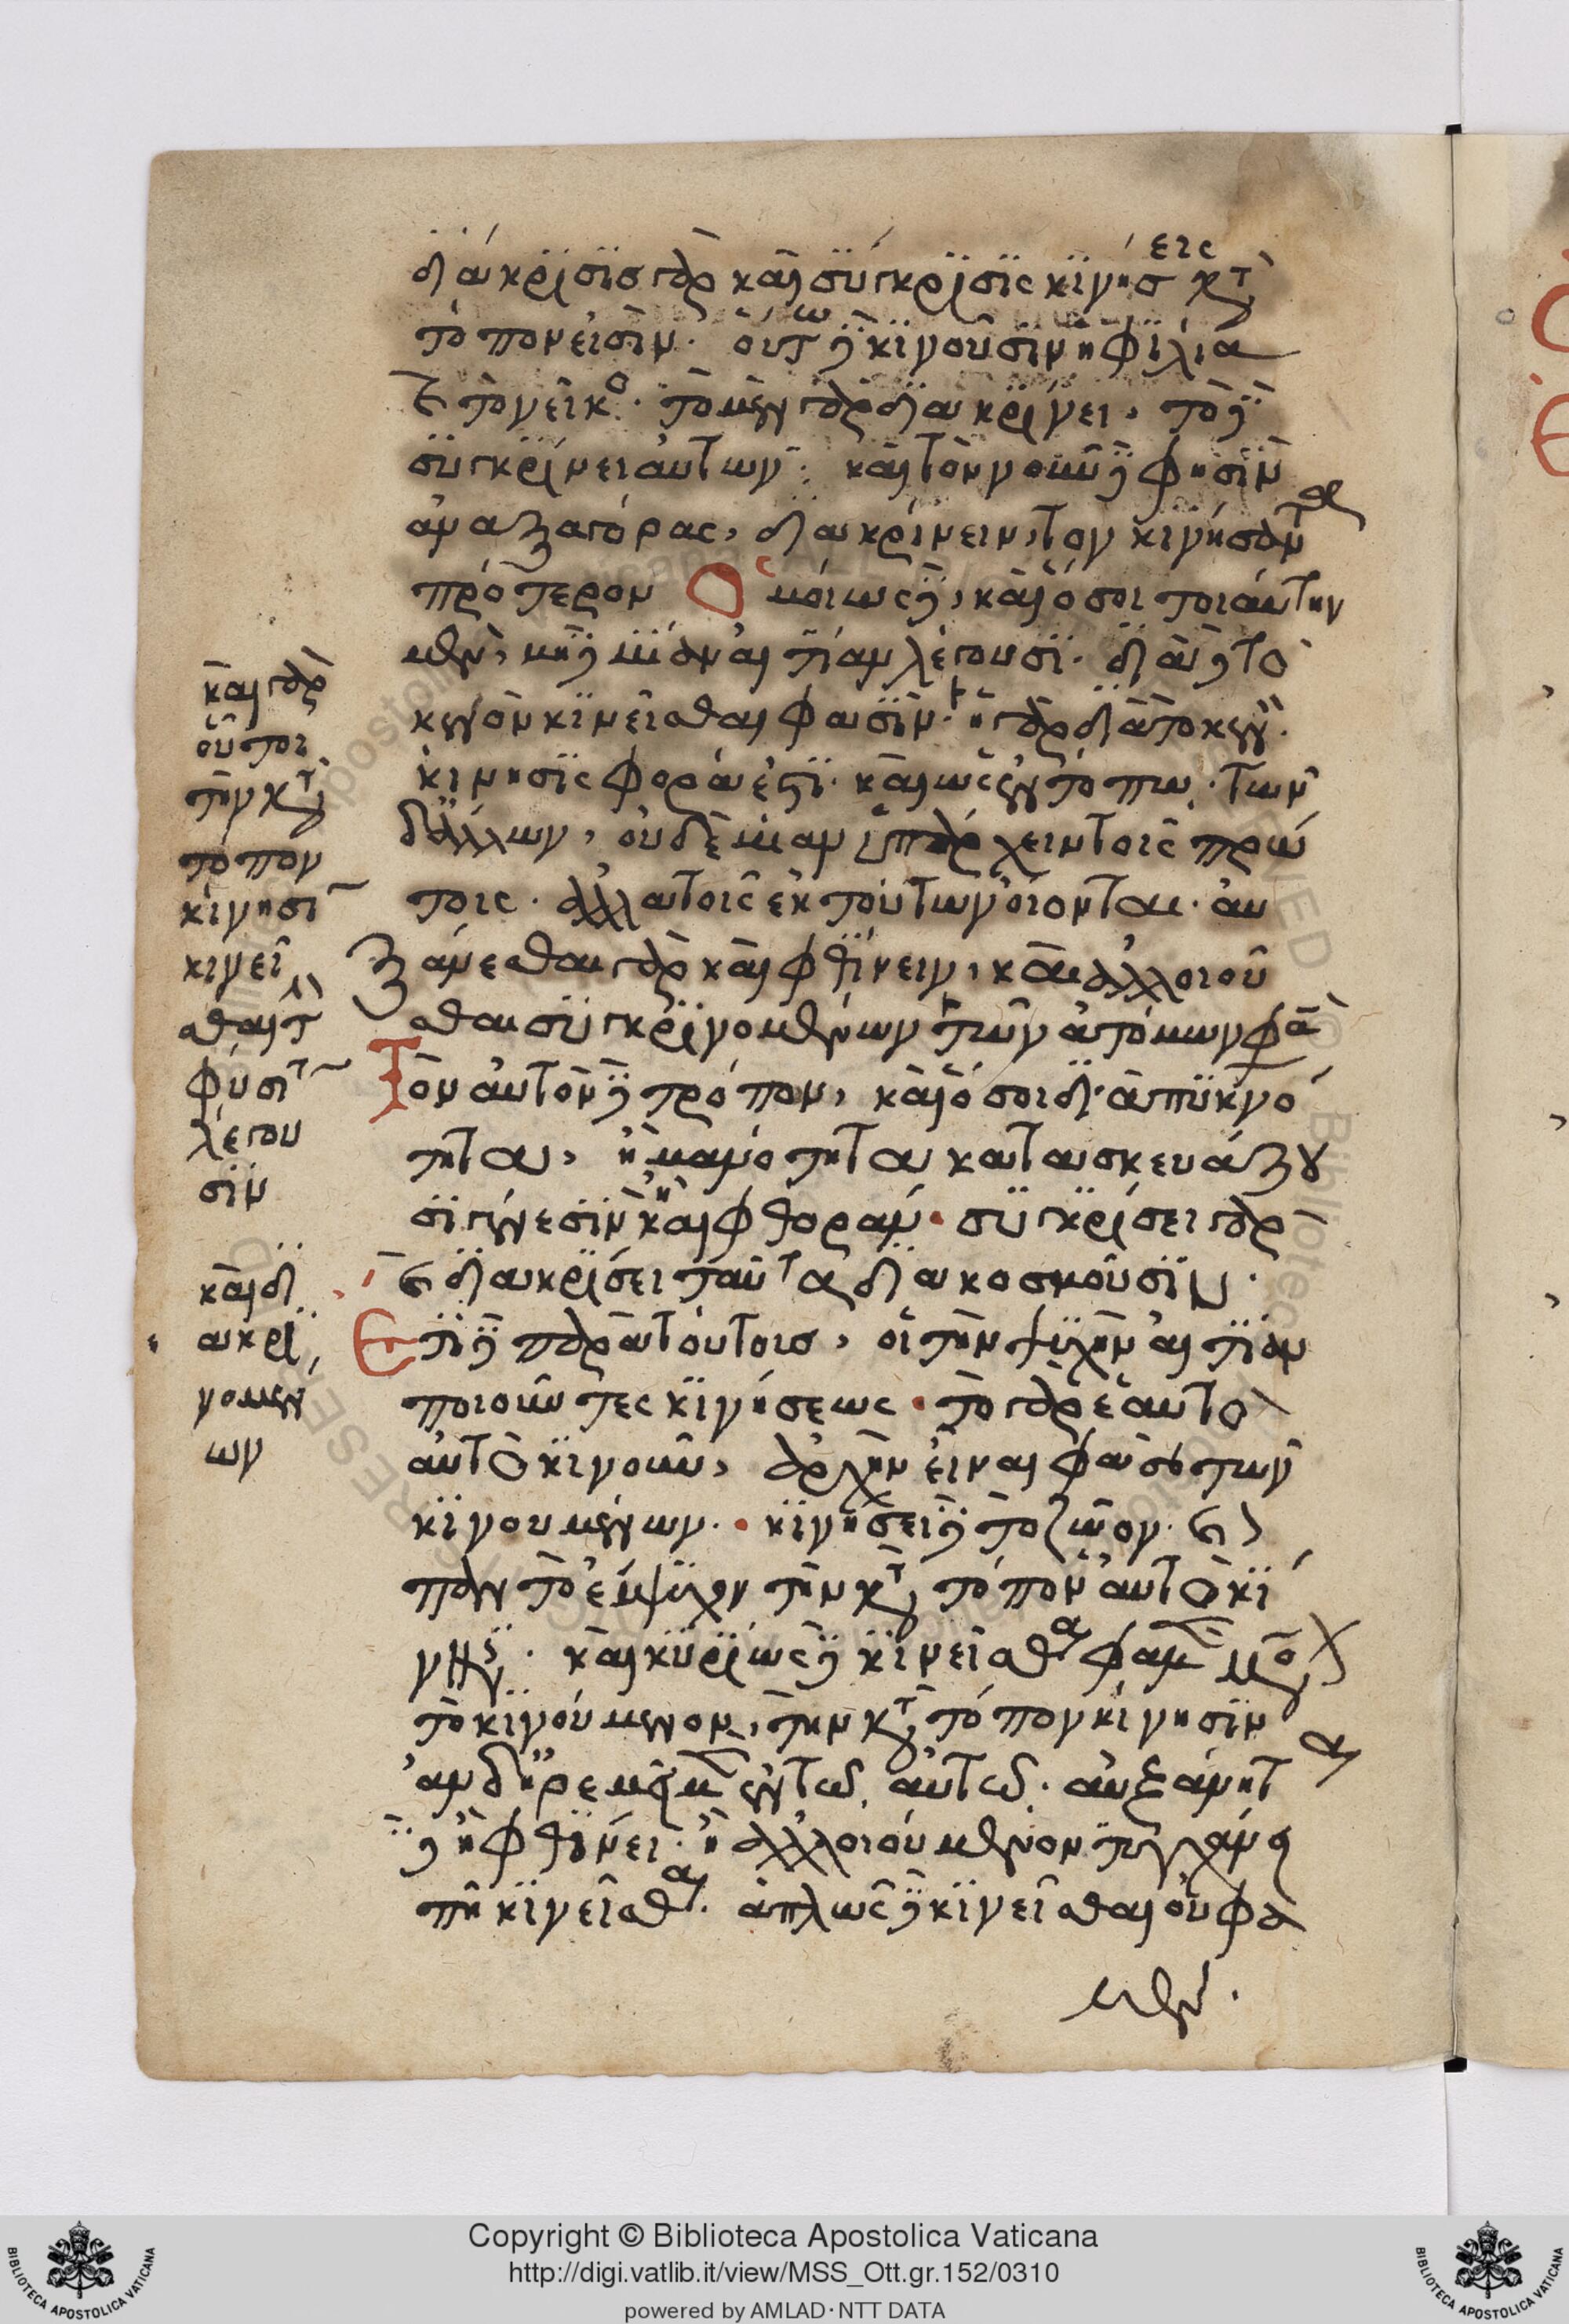 διάκρισις γὰρ καὶ σύγκρισις κινήσεις κατὰ
τόπον εἰσὶν. οὕτω δὲ κινοῦσιν ἡ φιλία
καὶ τὸ νεῖκος. τὸ μὲν γὰρ διακρίνει, τὸ δὲ
συγκρίνει αὐτῶν. καὶ τὸν νοῦν δὲ φησὶν
ἀναξαγόρας, διακρίνειν, τὸν κινήσαντα
πρότερον Ὁμοίως δὲ, καὶ ὅσοι τοιαύτην
μὲν, μηδεμίαν αἰτίαν λέγουσι. διὰ δὲ τὸ
κενὸν κινεῖσθαι φασὶν. ἡ γὰρ διὰ τὸ κενὸν
κίνησις φορά ἐστι. καὶ ὡς ἐν τόπῳ. τῶν
δ' ἄλλων, οὐδεμίαν ὑπάρχειν τοῖς πρώ
τοις. ἀλλὰ τοῖς ἐκ τούτων οἴονται. αὐ
ξάνεσθαι γὰρ καὶ φθίνειν, καὶ ἀλλοιοῦ
σθαι συγκρινομένων τῶν ἀτόμων φασὶ
Τὸν αὐτὸν δὲ τρόπον, καὶ ὅσοι διὰ πυκνό
τητα, ἢ μανότητα κατασκευάζου
σι γένεσιν καὶ φθοράν. συγκρίσει γὰρ
καὶ διακρίσει ταῦτα διακοσμοῦσιν.
Ἔτι δὲ παρὰ τούτοις, οἱ τὴν ψυχὴν αἰτίαν
ποιοῦντες κινήσεως. τὸ γὰρ ἑαυτὸ
αὐτὸ κινοῦν, ἀρχὴν εἶναι φασὶ τῶν
κινουμένων. κινήσει δὲ τὸ ζῷον. καὶ
πᾶν τὸ ἔμψυχον τὴν κατὰ τόπον αὐτὸ κί
νησιν. καὶ κυρίως δὲ κινεῖσθαι φαμὲν μόνον
τὸ κινούμενον, τὴν κατὰ τόπον κίνησιν
ἂν δ' ἠρεμῇ μὲν ἐν τῷ αὐτῷ. αὐξάνηται
δὲ ἢ φθίνει. ἢ ἀλλοιούμενον τυγχάνῃ
πῆ κινεῖσθαι. ἁπλῶς δὲ κινεῖσθαι οὐ φα
μέν.
καὶ γὰρ
οὗτοι
τὴν κατὰ
τόπον
κίνησιν
κινεῖ
σθαι τὴν
φύσιν
λέγου
σιν
καὶ δι
ακρι
νομέν
ων
Copyright © Biblioteca Apostolica Vaticana
http://digi.vatlib.it/view/MSS_Ott.gr.152/0310
powered by AMLAD·NTT DATA
BIBLIOTECA APOSTOLICA VATICANA
BIBLIOTECA APOSTOLICA VATICANA